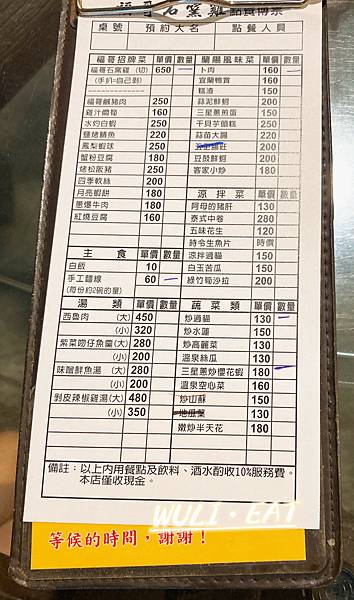 福哥石窯雞 點餐傳票
桌號 預約大名 點餐人員
福哥招牌菜 單價 數量
福哥石窯雞 (切) 650
(手扒=自己剝)
福哥鹹豬肉 250
雞汁燜筍 160
水灼白蝦 250
鹽烤鯖魚 220
鳳梨蝦球 250
蟹粉豆腐 180
烤松阪豬 250
四季軟絲 200
月亮蝦餅 180
蔥爆牛肉 180
紅燒豆腐 160
主食 單價 數量
白飯 10
手工麵線 60
(每份約2碗的量)
湯類 單價 數量
西魯肉 (大) 450
(小) 320
紫菜吻仔魚羹 (大) 280
(小) 200
味噌鮮魚湯 (大) 280
(小) 200
剝皮辣椒雞湯(大) 480
(小) 350
蘭陽風味菜 單價 數量
卜肉 160
宜蘭鴨賞 160
糕渣 150
蒜泥鮮蚵 200
三星蔥煎蛋 150
干貝芋頭糕 250
蒜苗大腸 220
200
豆鼓鮮蚵 200
客家小炒 180
涼拌菜 單價 數量
阿母的豬肝 180
泰式中卷 280
五味花生 120
時令生魚片 時價
涼拌過貓 150
白玉苦瓜 150
綠竹筍沙拉 200
蔬菜類 單價 數量
炒過貓 130
炒水蓮 150
炒高麗菜 130
溫泉絲瓜 130
三星蔥炒櫻花蝦 180
溫泉空心菜 160
炒山蘇 150
地瓜葉 130
嫩炒半天花 180
備註:以上内用餐點及飲料、酒水酌收10%服務費。
本店僅收現金。
WULI·EAT
等候的時間,謝謝!